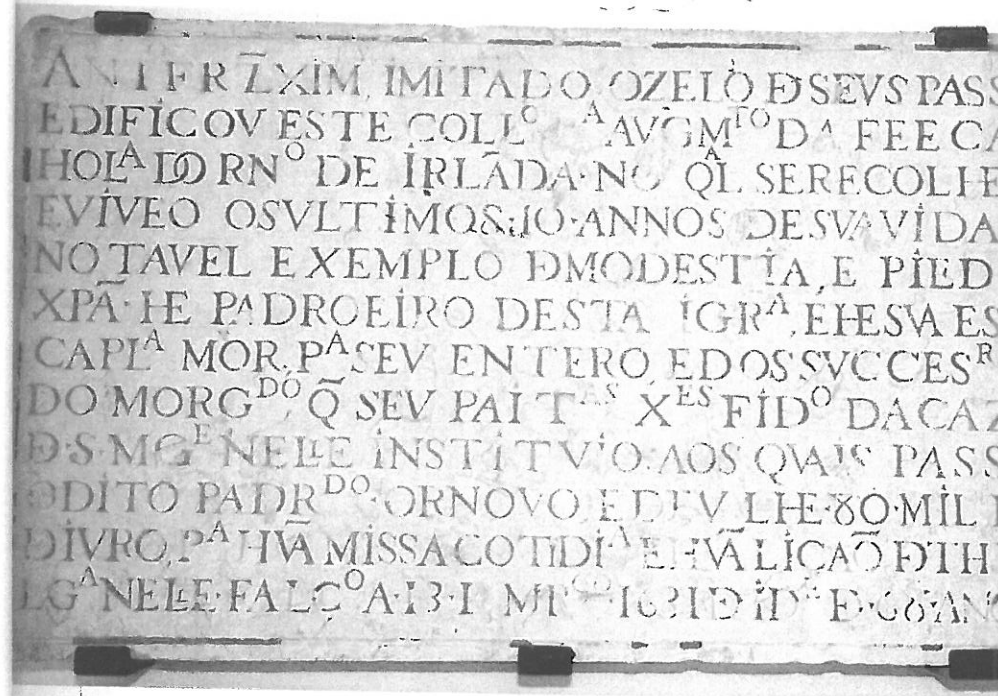 ANTER XIM, IMITADO, OZELO Ð SEVS PASS
EDIFICOV ESTE COLLº Aᴬ AVGMᵀᴼ DA FEE CA
HOLᴬ DO RNº DE IRLÃDA·NO QᴬL SERECOLHE
EVIVEO OSVLTIMOS·10·ANNOS DESVA VIDA
NOTAVEL EXEMPLO ÐMODESTIA, E PIED
XPÃ·HE PADROEIRO DESTA IGRᴬ, EHESVA ES
CAPLᴬ MOR, Pᴬ SEV ENTERO, EDOS SVCCESᴿ
DO MORGᴰᴼ, Q̃ SEV PAI Tᴬˢ Xᴱˢ FIDº DACAZ
Ð·S·MGᴱ NELLE INSTITVIO·AOS QVAIS PASS
ODITO PADRᴰᴼ·ORNOVO, E DEV LHE·80·MIL
ÐIVRO, Pᴬ HVÃ MISSA COTIDIᴬ E HVÃ LIÇAÕ ÐTH
LGᴬ NELLE·FALCº A·13·1631 Ð IDᴱ Ð·68·AN